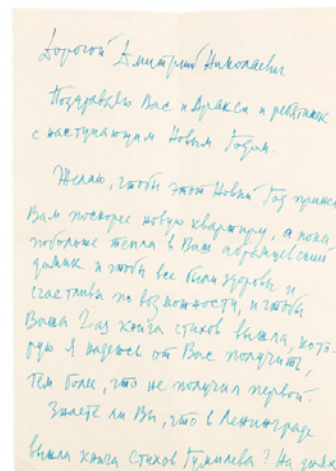 Дорогой Дмитрий Николаевич
Поздравляю Вас и Аракси и ребятишек
с наступающим Новым Годом.
Желаю, чтобы этот Новый Год принес
Вам поскорее новую квартиру, а пока
побольше тепла в Ваш абрамцевский
домик и чтобы все были здоровы и
счастливы по возможности, и чтобы
Ваша 2ая книга стихов вышла, кото-
рую я надеюсь от Вас получить,
тем более, что не получил первой.
Знаете ли Вы, что в Ленинграде
вышла книга стихов Гумилева? На